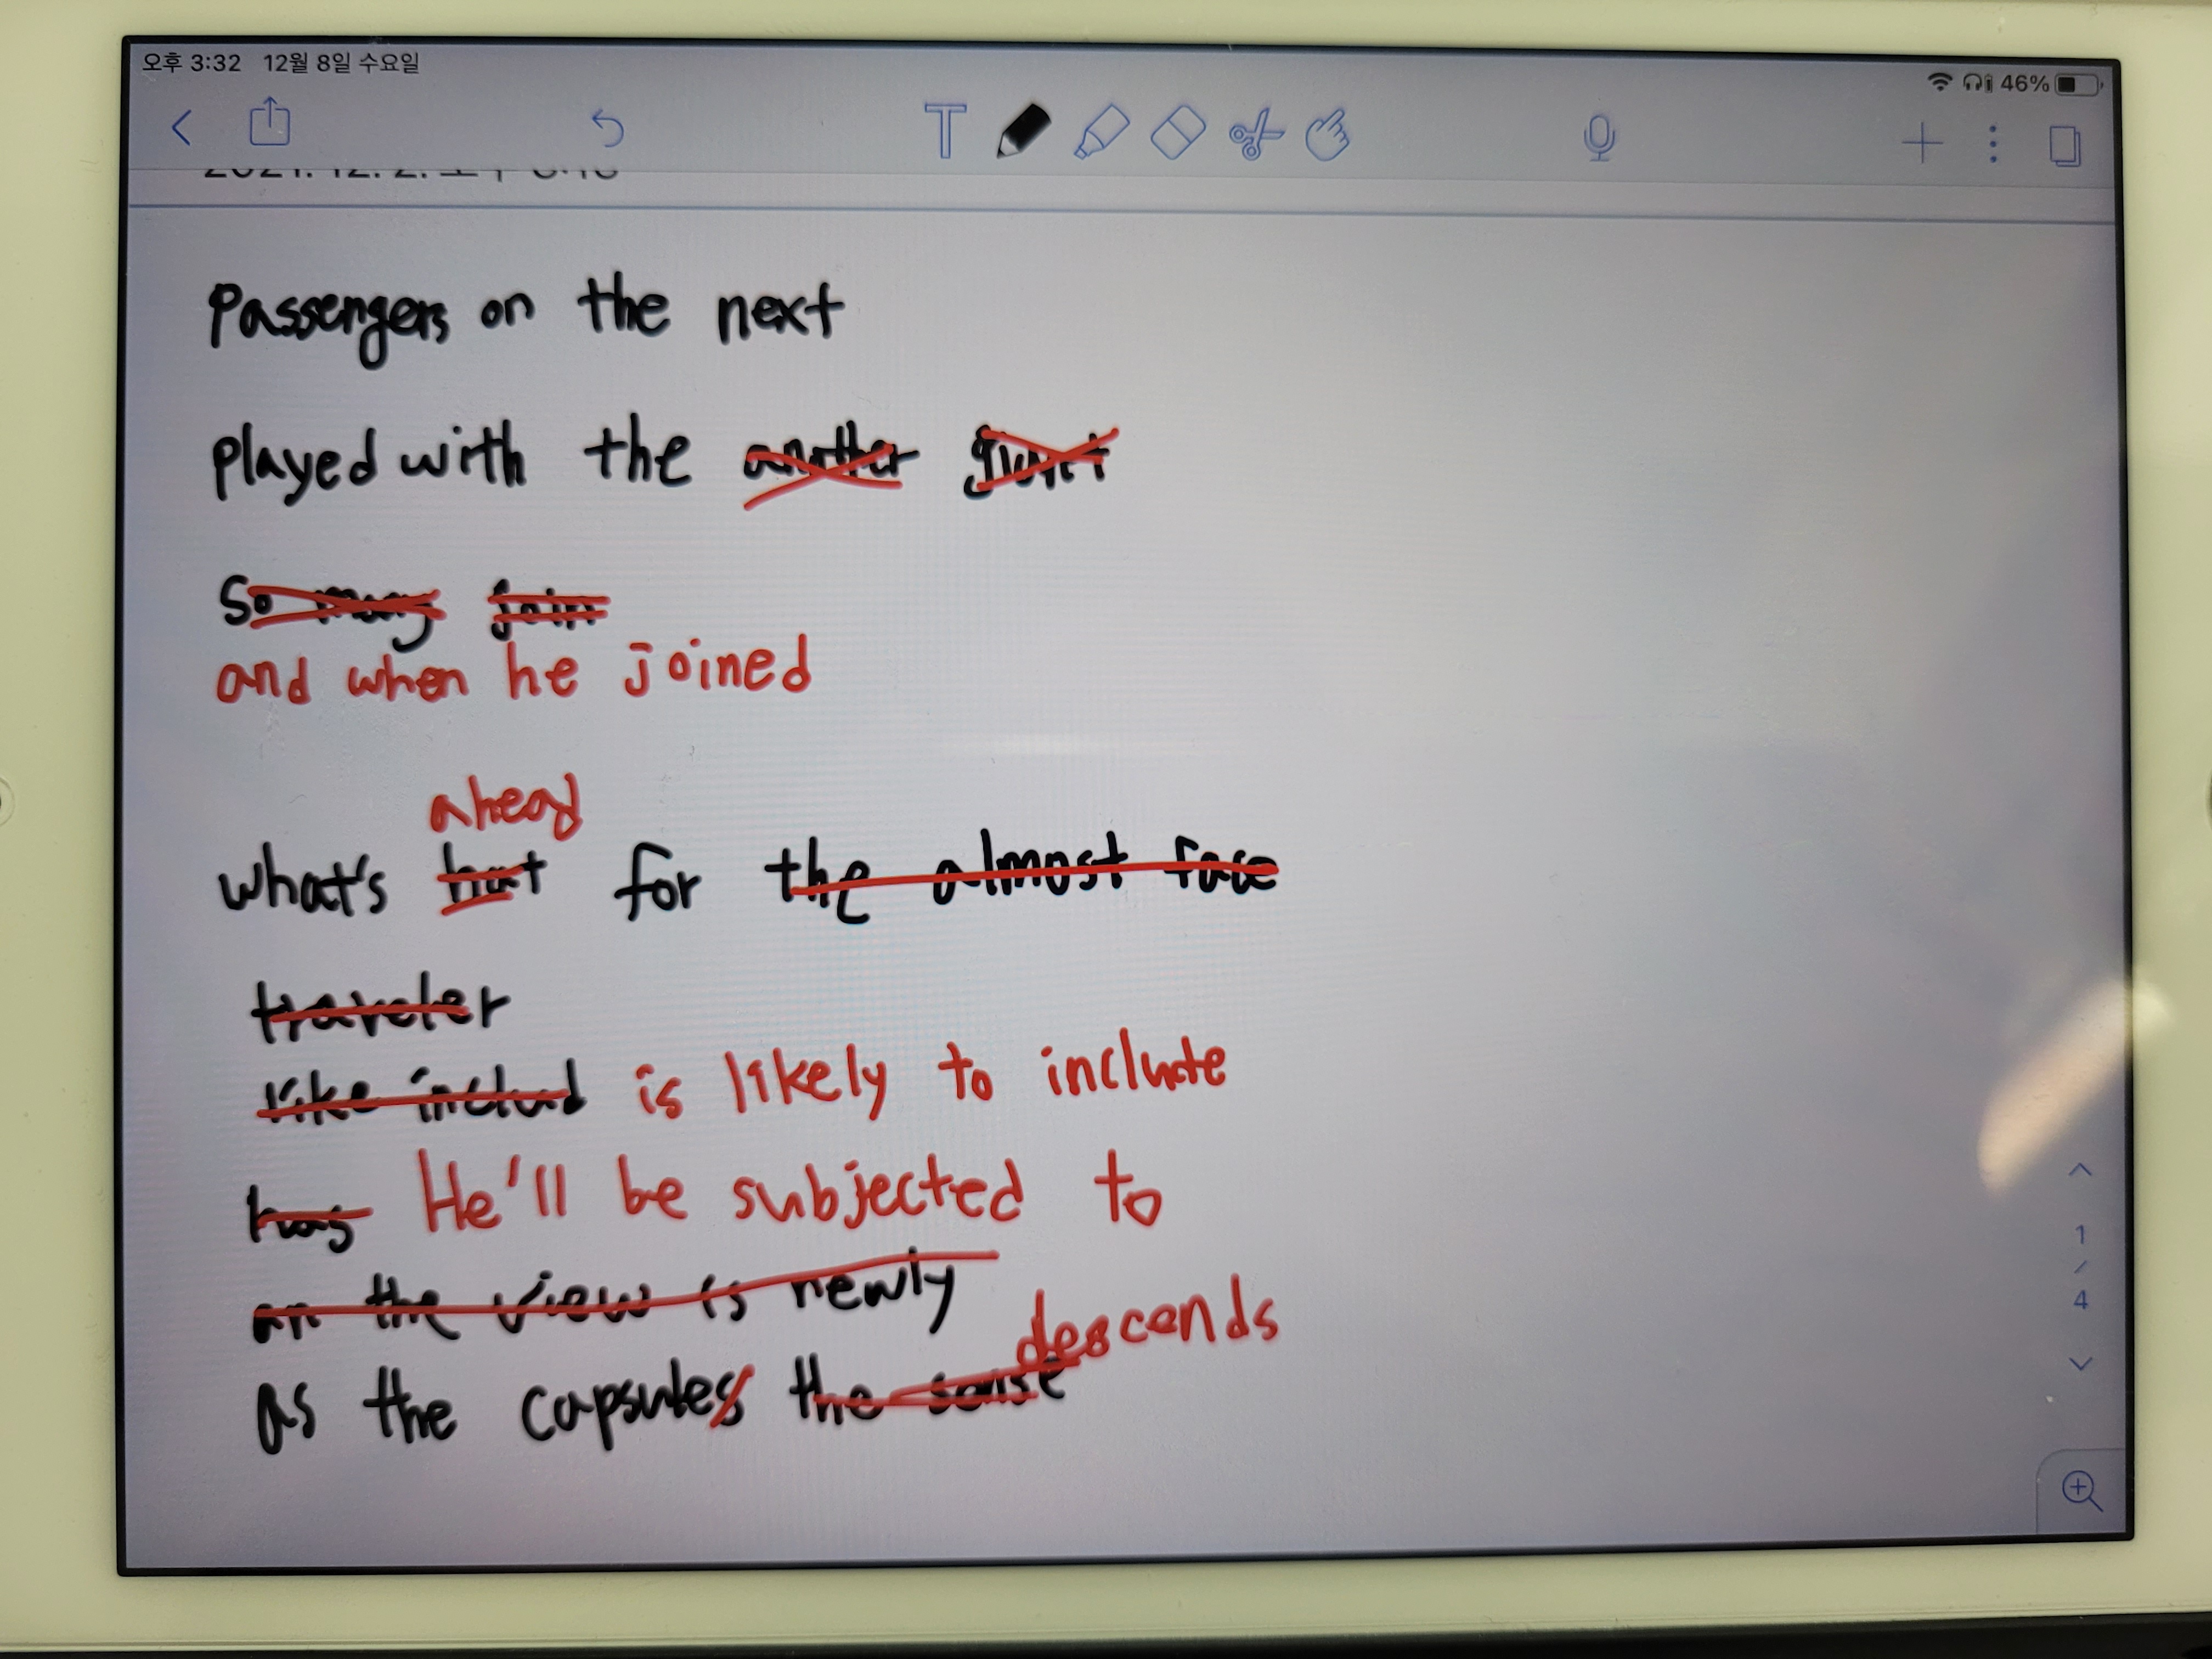 오후 3:32 12월 8일 수요일
46%
T
Passengers on the next
played with the another
So many join
and when he joined
ahead
what's hat for the almost face
traveler
like includ is likely to include
He'll be subjected to
on the view is newly
descends
as the capsules the sense
1
/
4